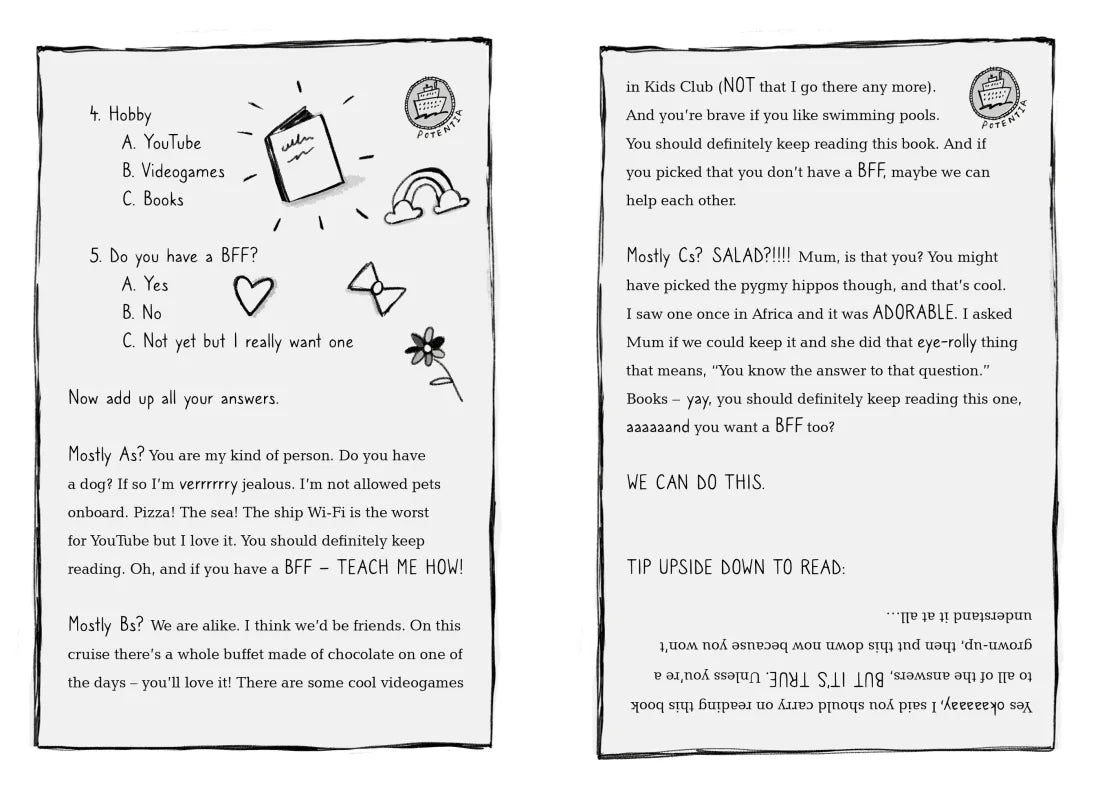 POTENTIA
4. Hobby
A. YouTube
B. Videogames
C. Books
5. Do you have a BFF?
A. Yes
B. No
C. Not yet but I really want one
Now add up all your answers.
Mostly As? You are my kind of person. Do you have
a dog? If so I’m verrrrrry jealous. I’m not allowed pets
onboard. Pizza! The sea! The ship Wi-Fi is the worst
for YouTube but I love it. You should definitely keep
reading. Oh, and if you have a BFF – TEACH ME HOW!
Mostly Bs? We are alike. I think we’d be friends. On this
cruise there’s a whole buffet made of chocolate on one of
the days – you’ll love it! There are some cool videogames
POTENTIA
in Kids Club (NOT that I go there any more).
And you’re brave if you like swimming pools.
You should definitely keep reading this book. And if
you picked that you don’t have a BFF, maybe we can
help each other.
Mostly Cs? SALAD?!!!! Mum, is that you? You might
have picked the pygmy hippos though, and that’s cool.
I saw one once in Africa and it was ADORABLE. I asked
Mum if we could keep it and she did that eye-rolly thing
that means, “You know the answer to that question.”
Books – yay, you should definitely keep reading this one,
aaaaaand you want a BFF too?
WE CAN DO THIS.
TIP UPSIDE DOWN TO READ:
Yes okaaaaay, I said you should carry on reading this book
to all of the answers, BUT IT’S TRUE. Unless you’re a
grown-up, then put this down now because you won’t
understand it at all…